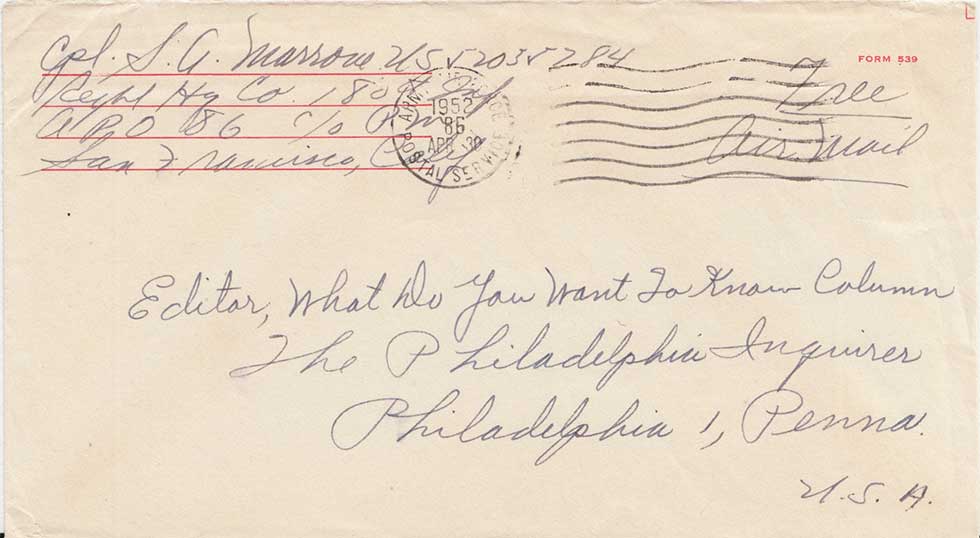 Cpl. S. A. Marrone US 52035284
Regtl Hq Co. 180th Inf
APO 86 c/o P.M.
San Francisco, Calif
FORM 539
Free
Air Mail
ARMY
POSTAL SERVICE
1952
86
APR 30
Editor, What Do You Want To Know Column
The Philadelphia Inquirer
Philadelphia 1, Penna.
U.S.A.